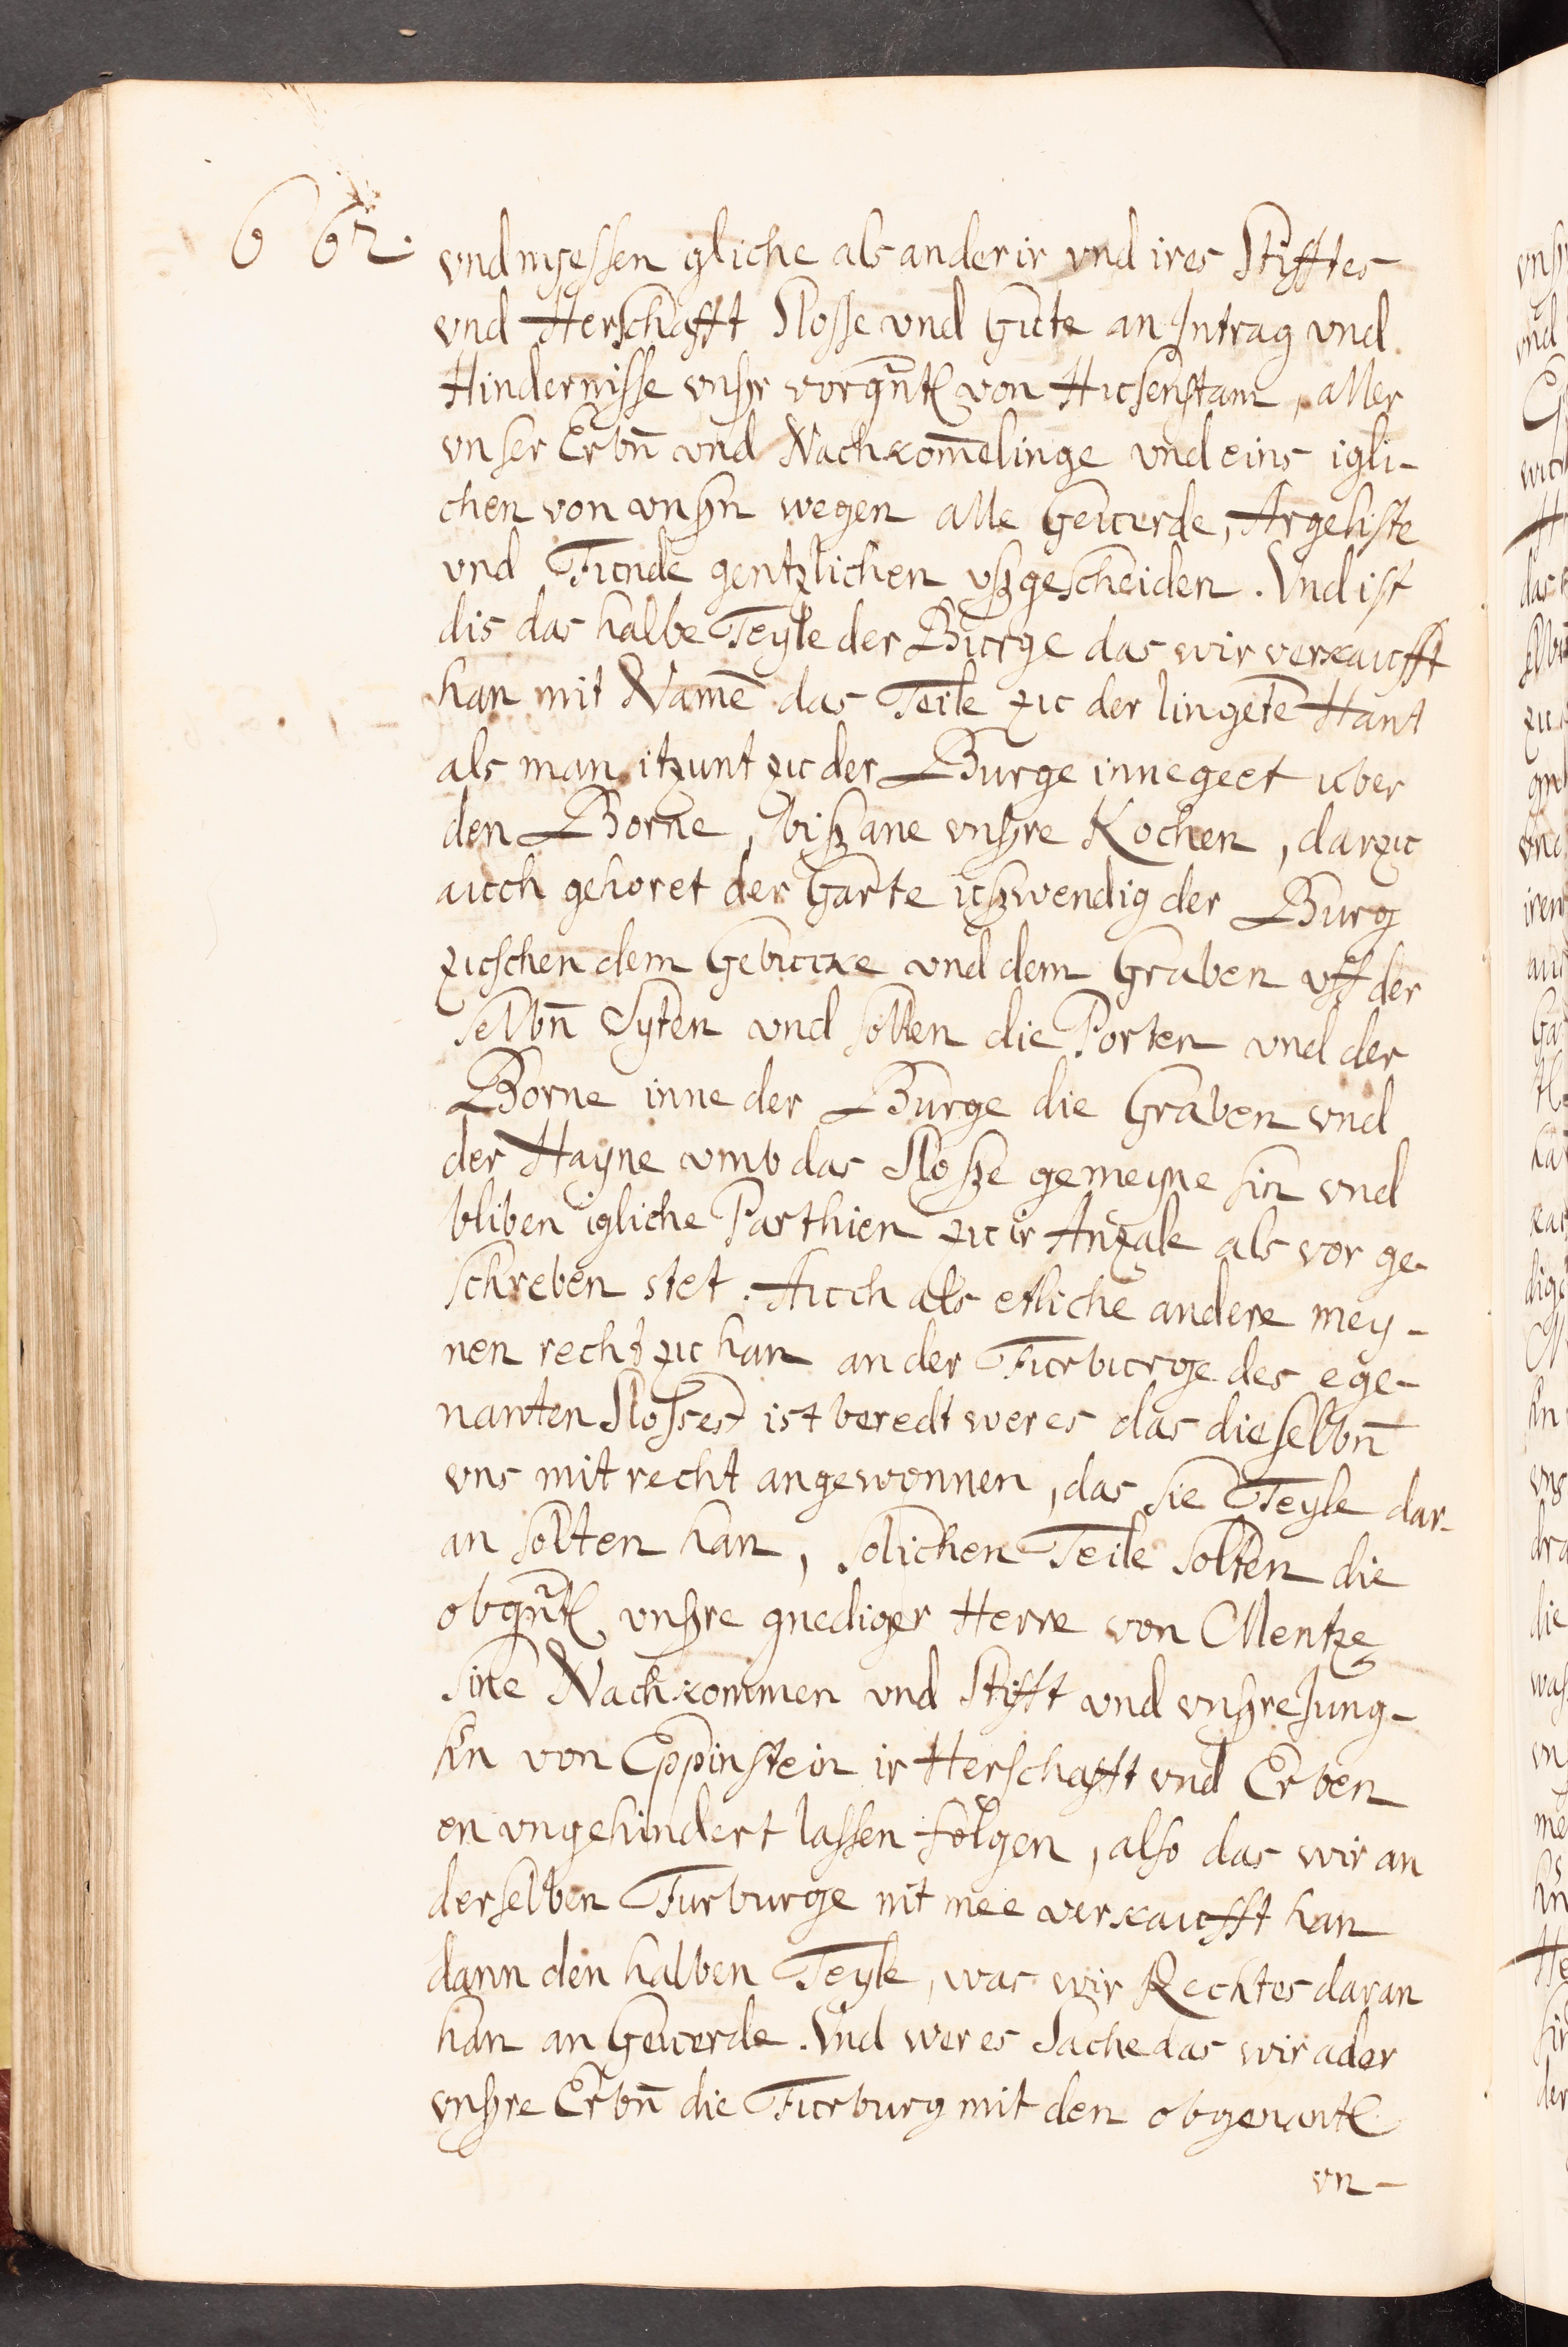 662.
vnd nyessen gliche als ander ir vnd ires Stifftes
vnd Herschafft Slosse vnd Gute an Intrag vnd
Hindernisse vnsʒr vorgn̄tʒ von Husenstam, aller
vnser Erbn̄ vnd Nachkom̄elinge vnd eins igli-
chen von vnsʒn wegen alle Geuerde, Argeliste
vnd Funde gentzlichen vßgescheiden. Vnd ist
dis das halbe Teyle der Burge das wir verkaufft
han mit Namē das Teile zu der lingetē Hant
als man itzunt zu der Burge inne geet uber
den Borne, biß ane vnsʒre Kochen, darzu
auch gehoret der Garte ußwendig der Burg
zuschen dem Gebucke vnd dem Graben vff der
selbn̄ Syten vnd sollen die Porten vnd der
Borne inne der Burge die Graben vnd
der Hayne vmb das Sloße gemeyne sin vnd
bliben igliche Parthien zu ir Anzale als vor ge-
schreben stet. Auch als etliche andere mey-
nen recht zu han an der Furburge des ege-
nanten Slosses ist beredt wer es das dieselbn̄
vns mit recht angewonnen, das sie Teyle dar-
an solten han, solichen Teile solten die
obgn̄tʒ vnsʒre gnediger Herre von Mentze
sine Nachkommen vnd Stifft vnd vnsʒre Jung-
hn von Eppinstein ir Herschafft vnd Erben
en vngehindert lassen folgen, also das wir an
derselben Furburge nit mee verkaufft han
dann den halben Teyle, was wir Rechtes daran
han an Geuerde. Vnd wer es Sache das wir ader
vnsʒre Erbn̄ die Furburg mit den obgenantʒ
vn-